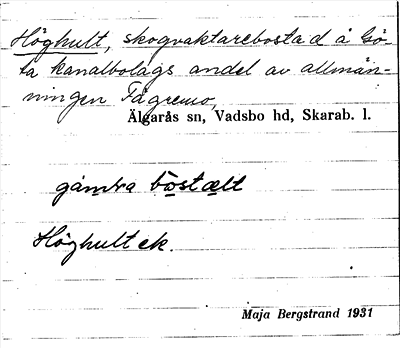 Höghult, skogvaktarebostad å Gö-
ta kanalbolags andel av allmän-
ningen Fägremo,
Älgarås sn, Vadsbo hd, Skarab. l.
gamla bostället
Höghult ek.
Maja Bergstrand 1931